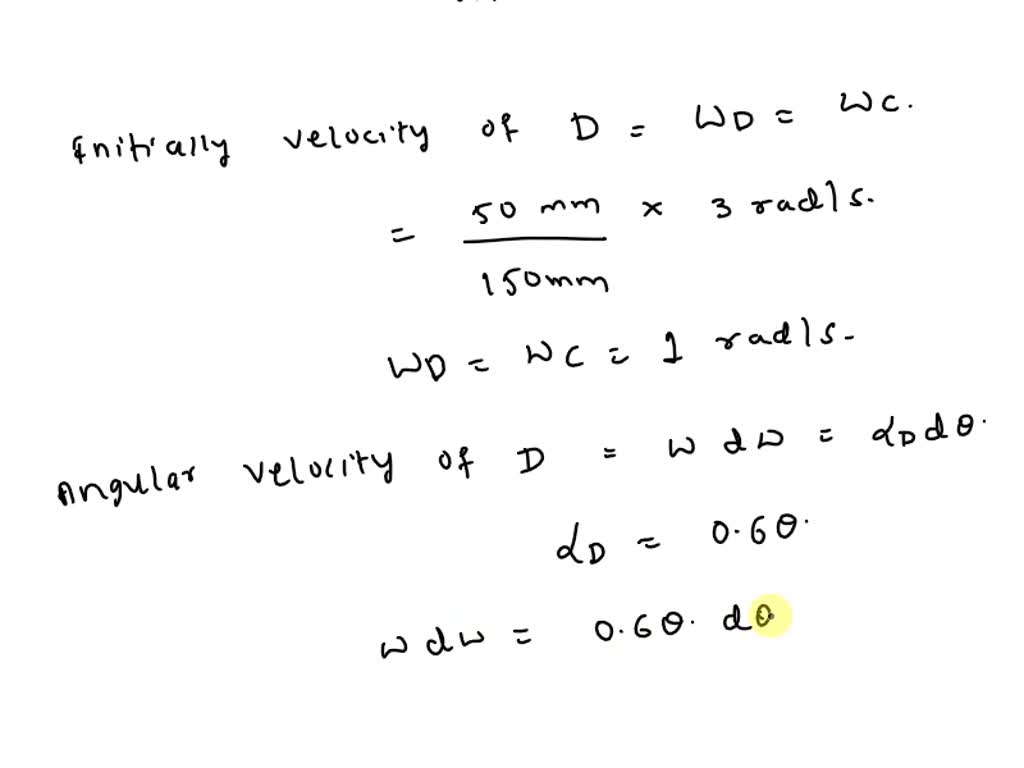 Initially velocity of D = WD = WC.
= 50 mm / 150mm × 3 rad/s.
WD = WC = 1 rad/s.
Angular velocity of D = w dw = αD dθ.
αD = 0.6θ.
w dw = 0.6θ. dθ